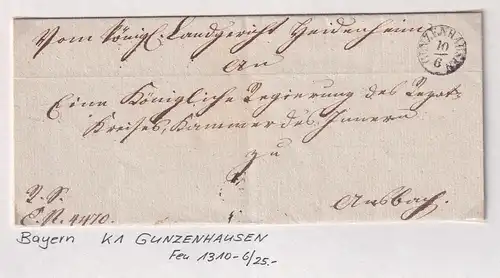 Vom königl. Landgericht Heidenheim
GUNZENHAUSEN
10
6
An
Eine Königliche Regierung des Rezat-
Kreises, Kammer des Innern
zu
Ansbach.
R. S.
E. N. 4470.
Bayern K1 GUNZENHAUSEN
Feu 1310-6/25.-